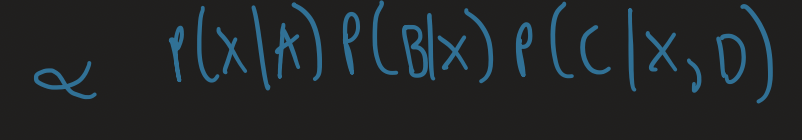 ∝ P(X|A) P(B|X) P(C|X,D)